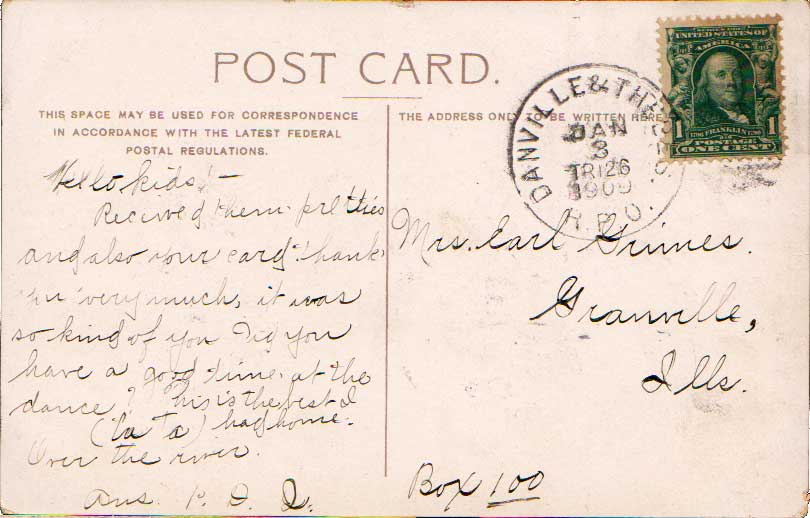 POST CARD.
THIS SPACE MAY BE USED FOR CORRESPONDENCE
IN ACCORDANCE WITH THE LATEST FEDERAL
POSTAL REGULATIONS.
THE ADDRESS ONLY TO BE WRITTEN HERE
Hello kids! —
Received them pretties
and also your card. thank
you very much, it was
so kind of you Did you
have a good time at the
dance? This is the best I
(Ta Ta) had home.
Over the river.
Ans. P. D. Q.
DANVILLE & THE
JAN
3
TR 126
1909
R.P.O.
UNITED STATES OF
AMERICA
1 FRANKLIN 1
POSTAGE
ONE CENT
Mrs. Earl Grimes.
Granville,
Ills.
Box 100